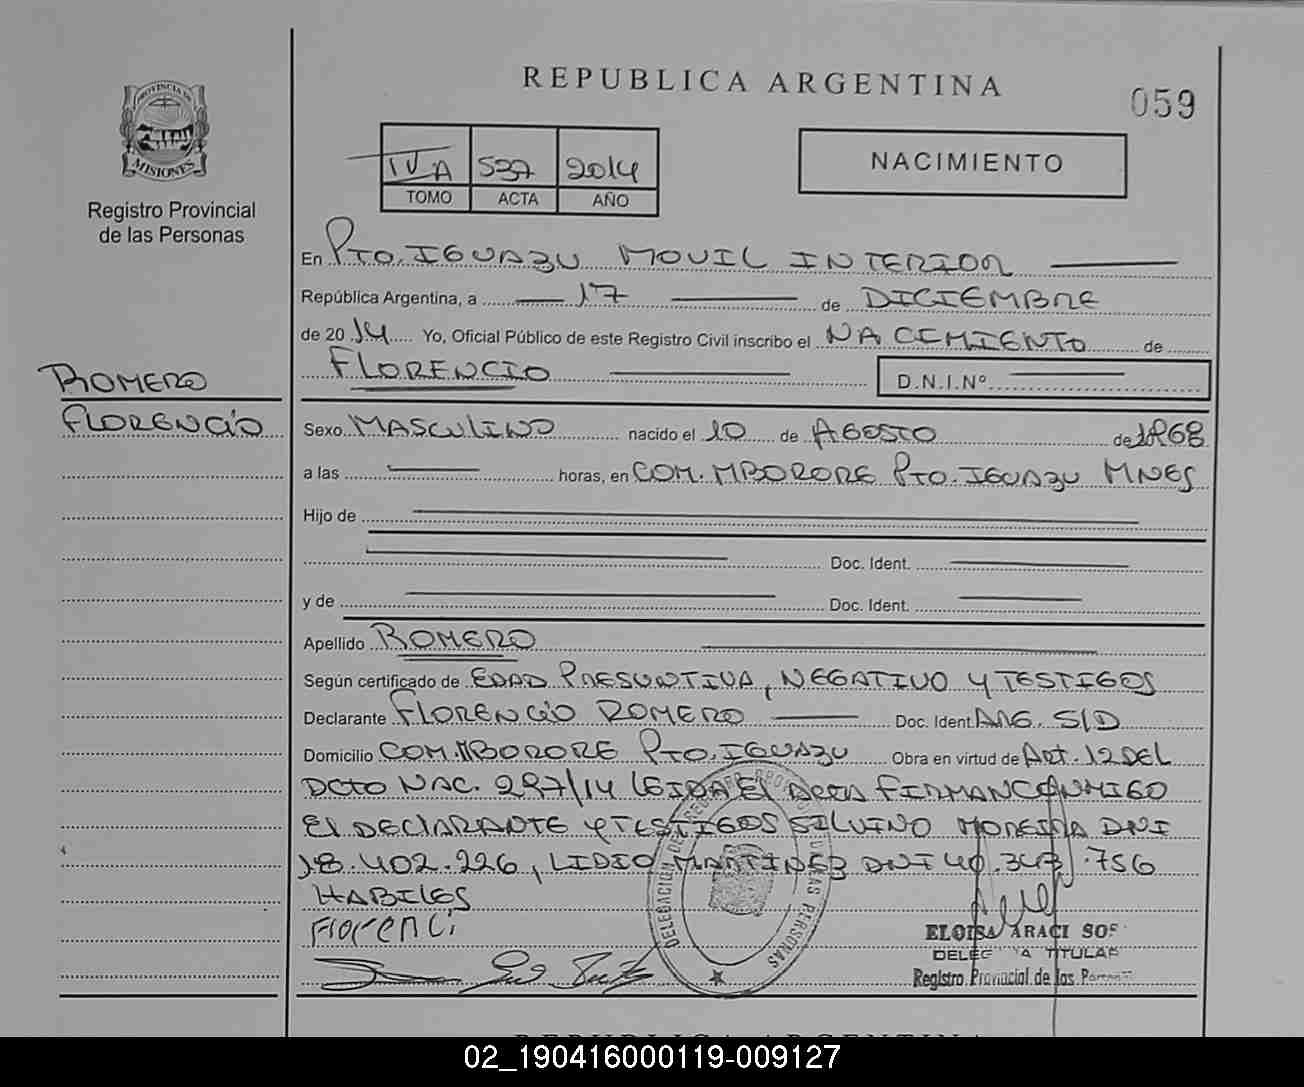 REPUBLICA ARGENTINA
059
PROVINCIA DE
MISIONES
Registro Provincial
de las Personas
IV A 537 2014
TOMO ACTA AÑO
NACIMIENTO
En PTO. IGUAZU MOVIL INTERIOR
República Argentina, a 17 de DICIEMBRE
de 2014 Yo, Oficial Público de este Registro Civil inscribo el NACIMIENTO de
FLORENCIO D.N.I.Nº
ROMERO
FLORENCIO
Sexo MASCULINO nacido el 10 de AGOSTO de 1968
a las horas, en COM. MBORORE PTO. IGUAZU MNES
Hijo de
Doc. Ident.
y de Doc. Ident.
Apellido ROMERO
Según certificado de EDAD PRESUNTIVA, NEGATIVO Y TESTIGOS
Declarante FLORENCIO ROMERO Doc. Ident. ARG. S/D
Domicilio COM. MBORORE PTO. IGUAZU Obra en virtud de ART. 12 DEL
DCTO NAC. 297/14 LEIDA EL ACTA FIRMAN CONMIGO
EL DECLARANTE Y TESTIGOS SILVINO MOREIRA DNI
18.402.226, LIDIO MARTINEZ DNI 40.343.756
HABILES
Florenci
DELEGACION DEL REGISTRO DE LAS PERSONAS
ELOISA ARACI
TITULAR
Registro Provincial de las
REPUBLICA ARGENTINA
02_190416000119-009127